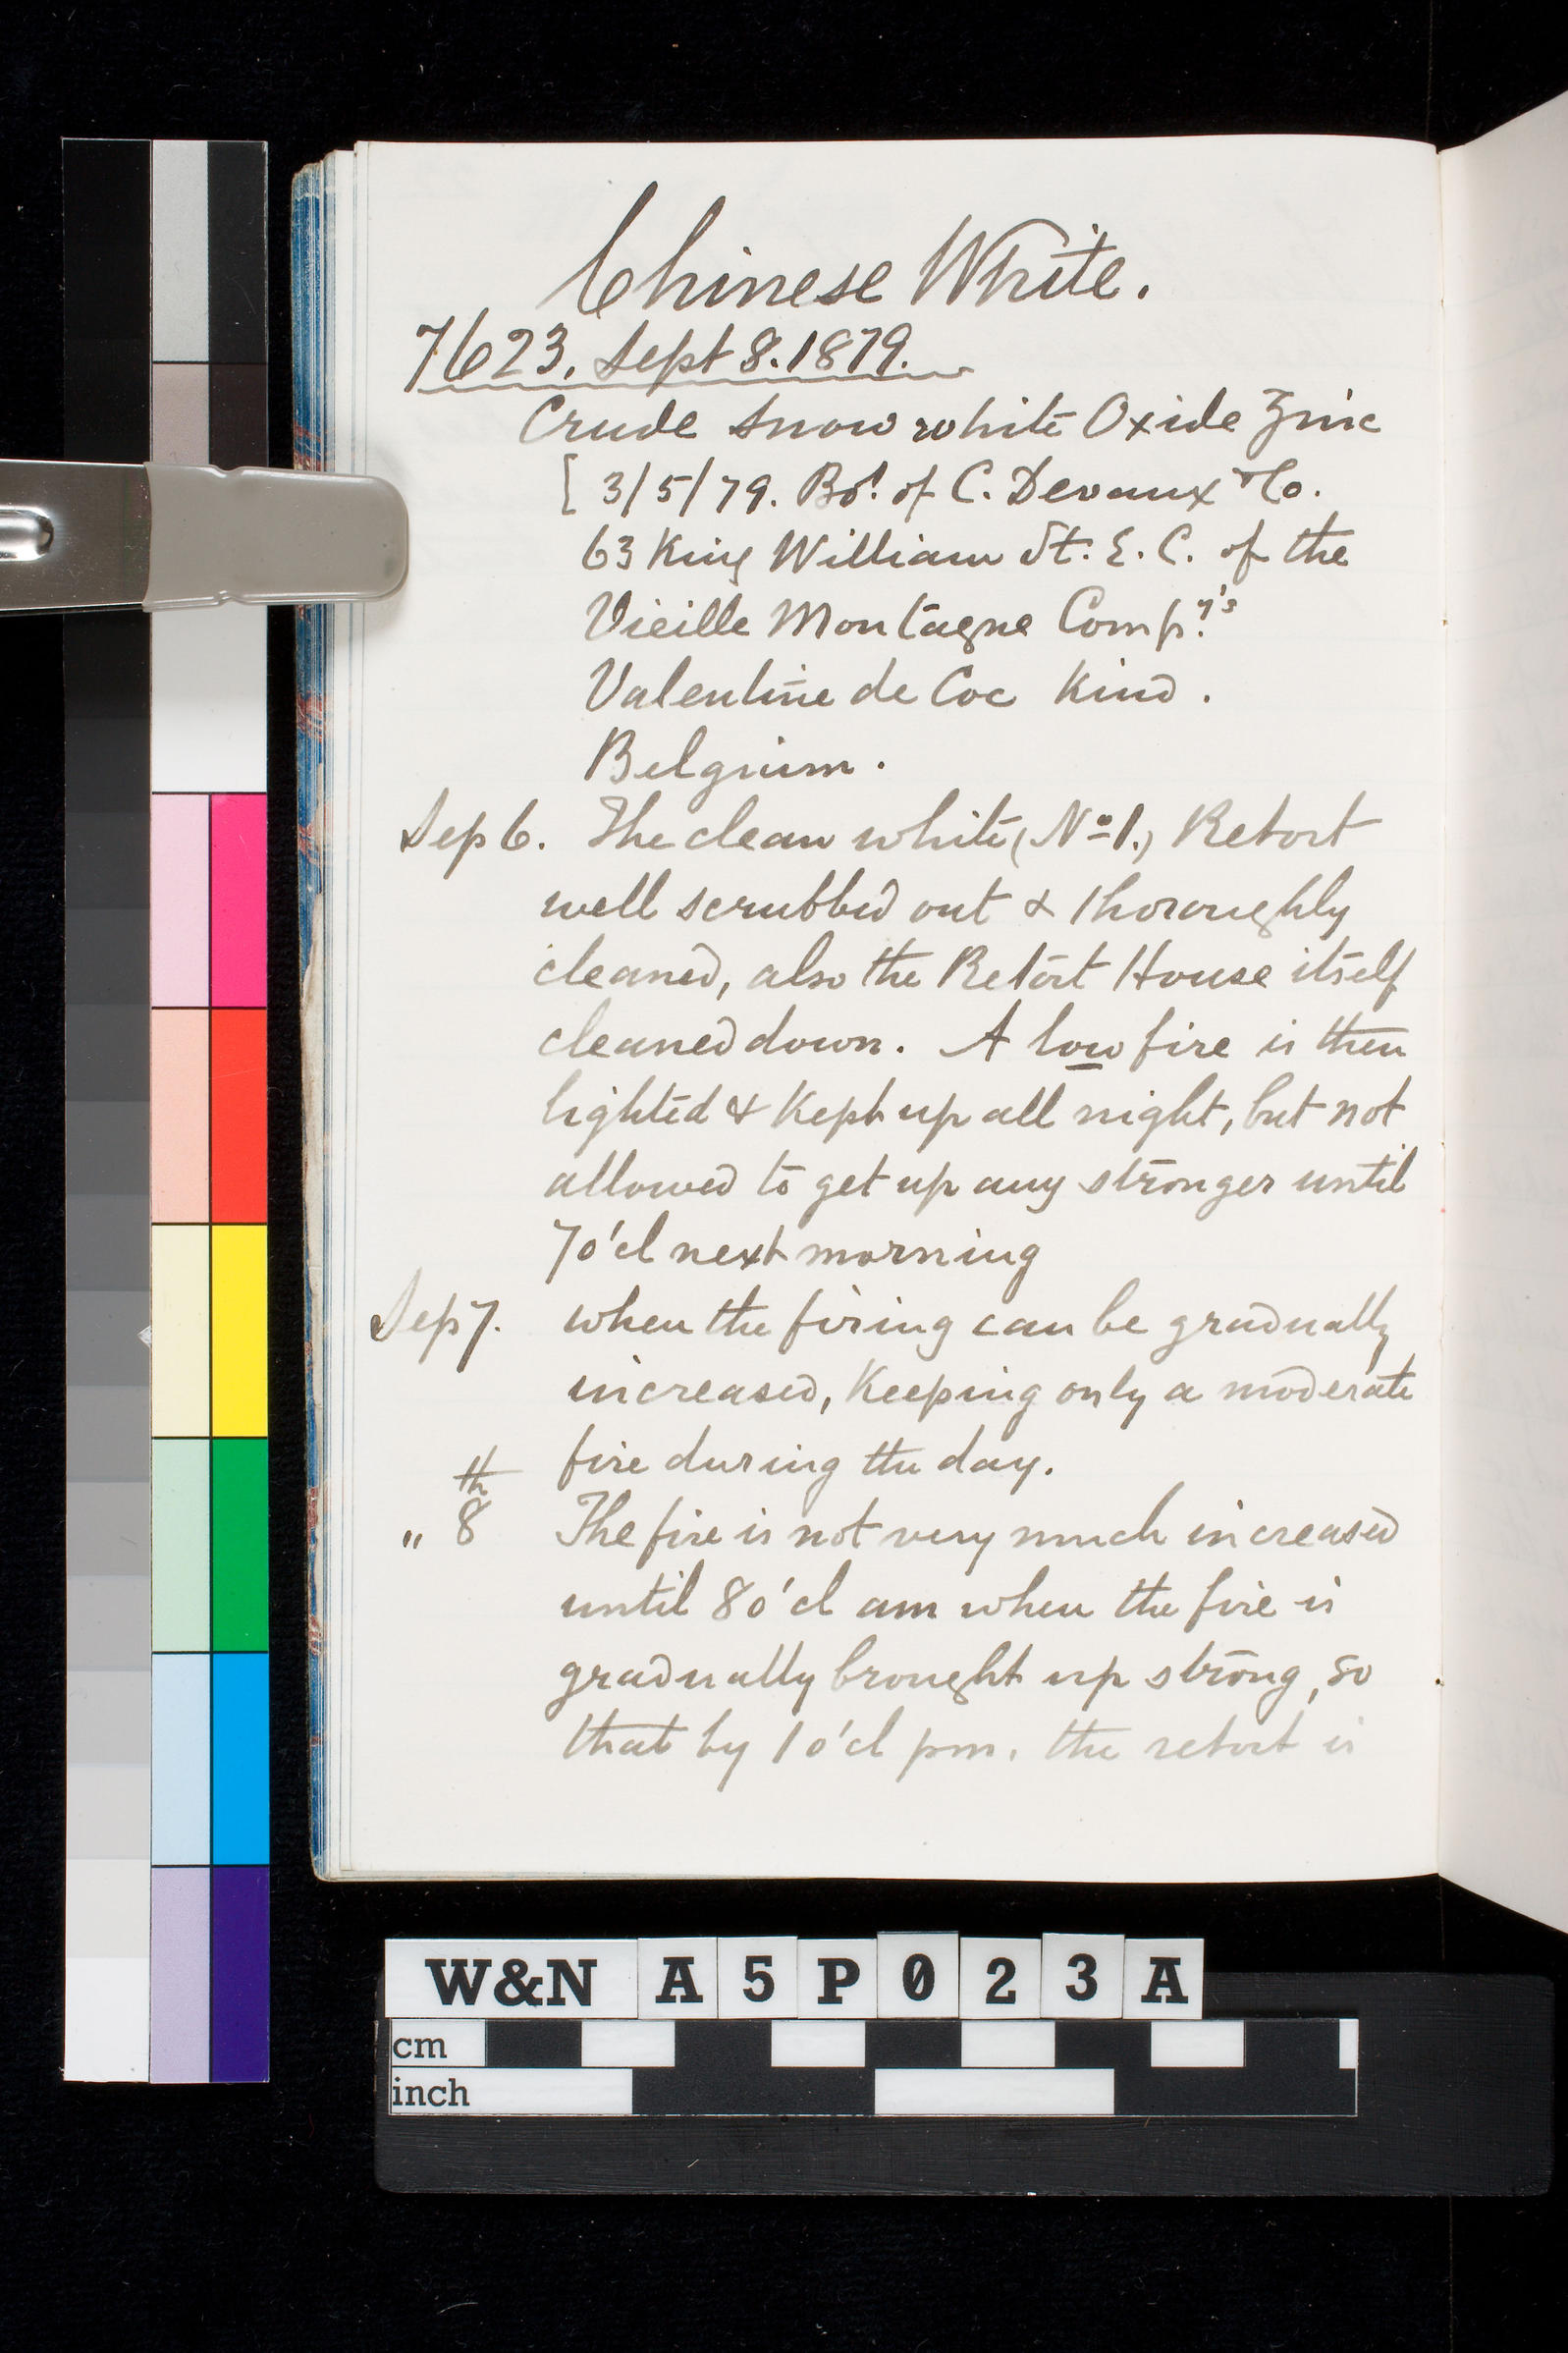 Chinese White.
7623. Sept 8. 1879.
Crude Snow white Oxide Zinc
[ 3/5/79. Bot. of C. Devaux & Co.
63 King William St. E. C. of the
Vieille Montagne Comp.y's
Valentine de Coc Kind.
Belgium.
Sep 6. The clean white (No 1.) Retort
well scrubbed out & thoroughly
cleaned, also the Retort House itself
cleaned down. A low fire is then
lighted & Kept up all night, but not
allowed to get up any stronger until
7 o'cl next morning
Sep 7. when the firing can be gradually
increased, Keeping only a moderate
fire during the day.
" 8th The fire is not very much increased
until 8 o'cl am when the fire is
gradually brought up strong, so
that by 1 o'cl pm. the retort is
W&N A5P023A
cm
inch